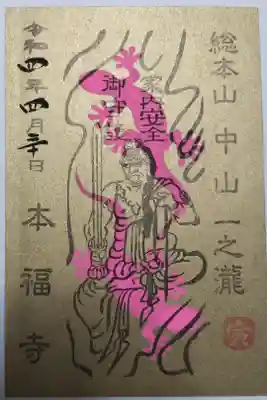 総本山 中山一之瀧
家内安全
御守護
令和四年四月三十日
本福寺